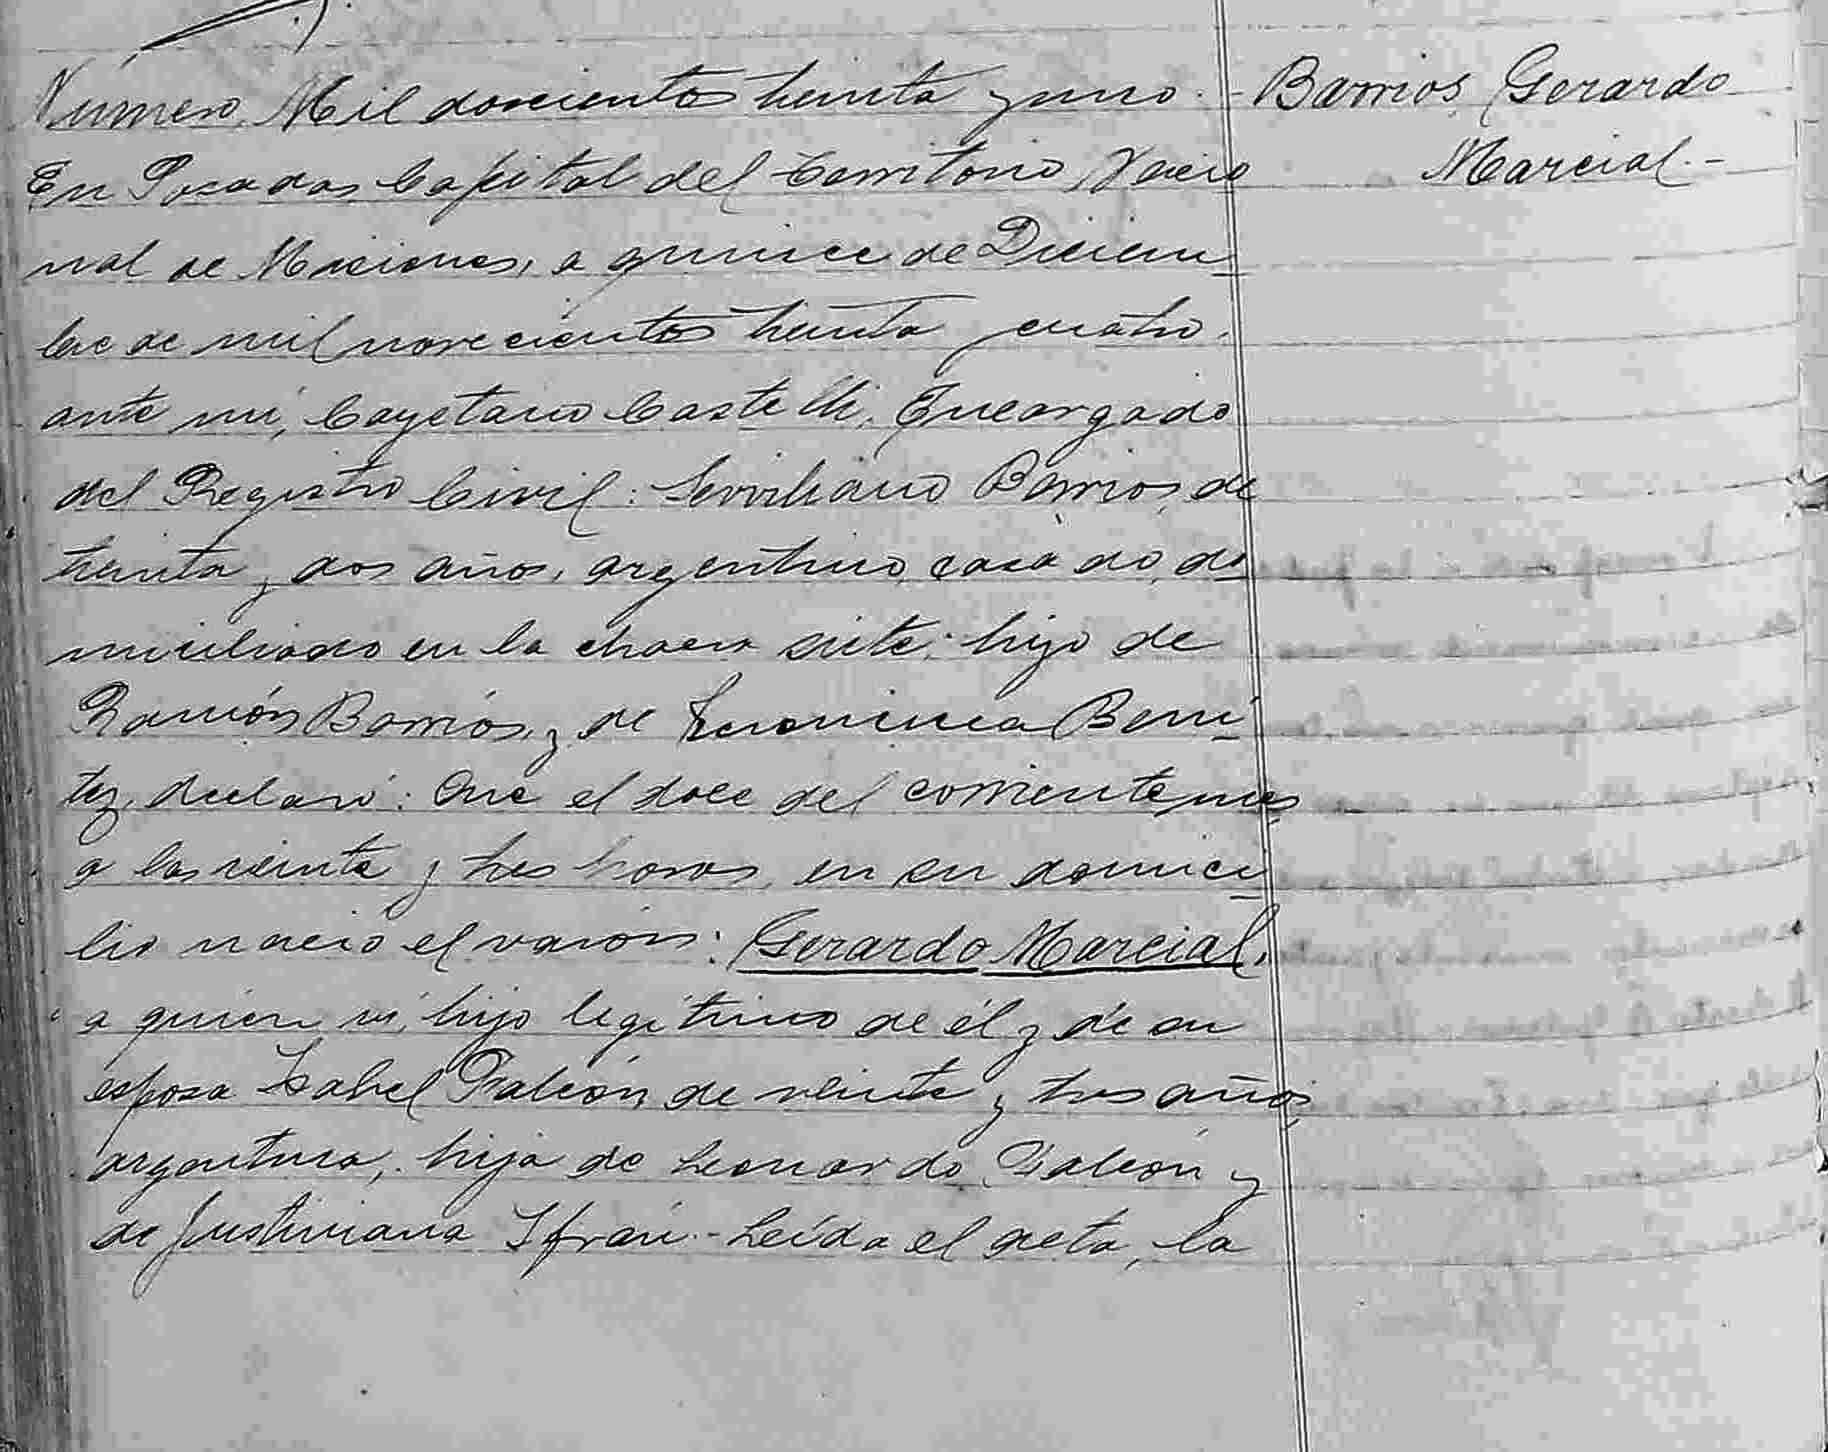 Número Mil doscientos treinta y uno.-
Barrios, Gerardo
Marcial.-
En Posadas Capital del Territorio Nacio
nal de Misiones, a quince de Diciem-
bre de mil novecientos treinta y cuatro,
ante mí, Cayetano Castelli, Encargado
del Registro Civil: Serviliano Barrios, de
treinta y dos años, argentino, casado, do
miciliado en la chacra siete, hijo de
Ramón Barrios, y de Veronica Bení-
tez, declaró: Que el doce del corriente mes
a las veinte y tres horas, en su domici-
lio nació el varón: Gerardo Marcial,
a quien ví, hijo legítimo de él y de su
esposa Isabel Falcón, de veinte y tres años,
argentina, hija de Leonardo Falcón y
de Justiniana Ifrán.- Leída el acta, la